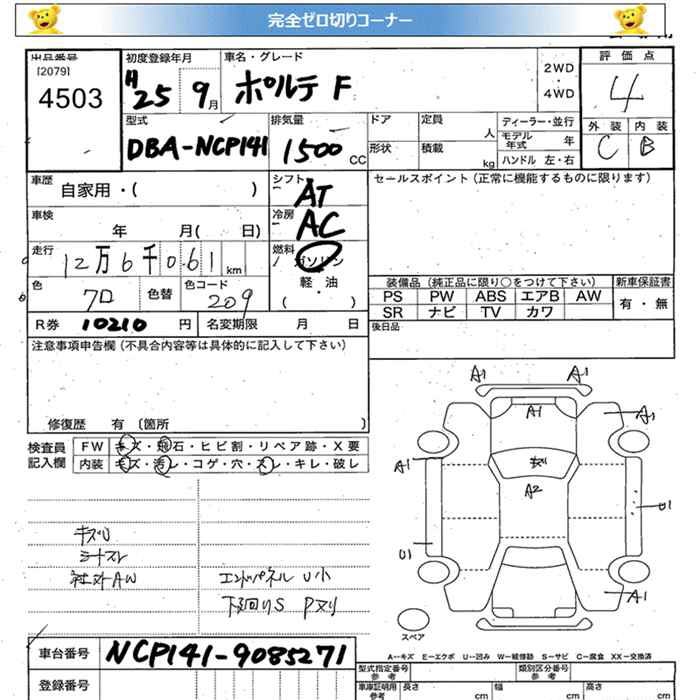 完全ゼロ切りコーナー
出品番号
[2079]
4503
初度登録年月
H25 9月
車名・グレード
ポルテ F
2WD
・
4WD
評価点
4
外装 内装
C B
型式
DBA-NCP141
排気量
1500 CC
ドア
定員 人
形状
積載 kg
ディーラー・並行
モデル年式 年
ハンドル 左・右
車歴
自家用・( )
シフト
AT
セールスポイント (正常に機能するものに限ります)
車検
年 月( 日)
冷房
AC
走行
12万6千061 km
燃料
ガソリン
・
軽・油
( )
色
クロ
色替
色コード
209
装備品 (純正品に限り○をつけて下さい)
新車保証書
PS PW ABS エアB AW
有・無
SR ナビ TV カワ
R券 10210 円
名変期限 月 日
後日品
注意事項申告欄 (不具合内容等は具体的に記入して下さい)
修復歴 有 〔箇所 〕
検査員
記入欄
FW キズ・飛石・ヒビ割・リペア跡・X要
内装 キズ・汚レ・コゲ・穴・スレ・キレ・破レ
A1 A1
A1
A1
A1
A2
U1
U1
A1
キズ小
シートスレ
社外AW
エンドパネル U小
下回りS Pヌリ
スペア
A--キズ E--エクボ U--凹み W--補修跡 S--サビ C--腐食 XX--交換済
車台番号
NCP141-9085271
登録番号
型式指定番号
参考
類別区分番号
参考
車庫証明用
参考
長さ cm
幅 cm
高さ cm